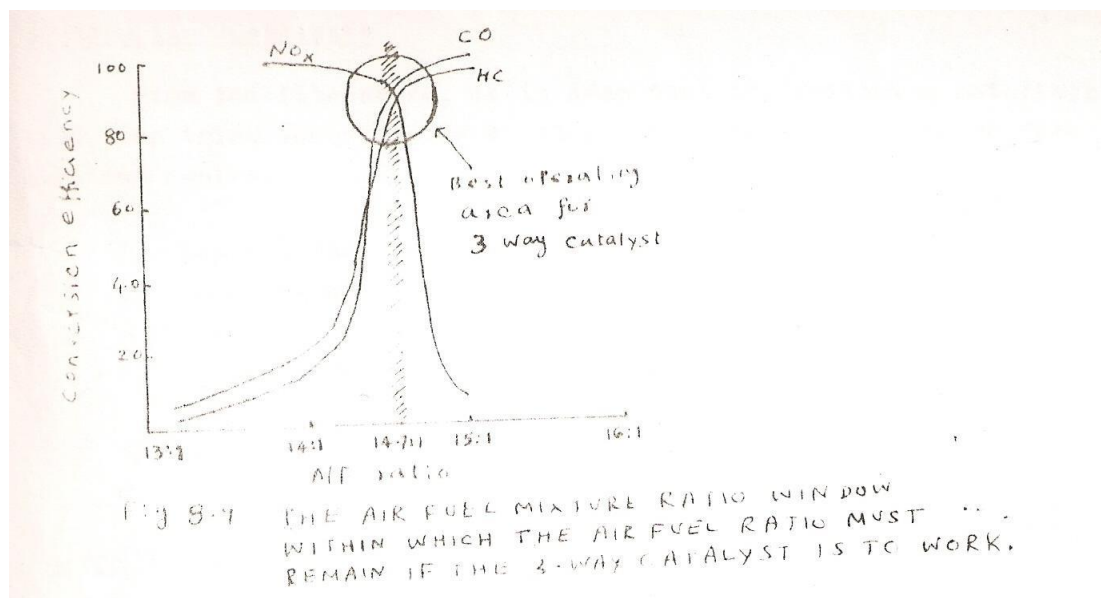 NOx
CO
HC
100
80
60
40
20
Conversion efficiency
Best operating
area for
3 way catalyst
13:1
14:1
14.7:1
15:1
16:1
A/F ratio
Fig 8.4 THE AIR FUEL MIXTURE RATIO WINDOW
WITHIN WHICH THE AIR FUEL RATIO MUST
REMAIN IF THE 3-WAY CATALYST IS TO WORK.